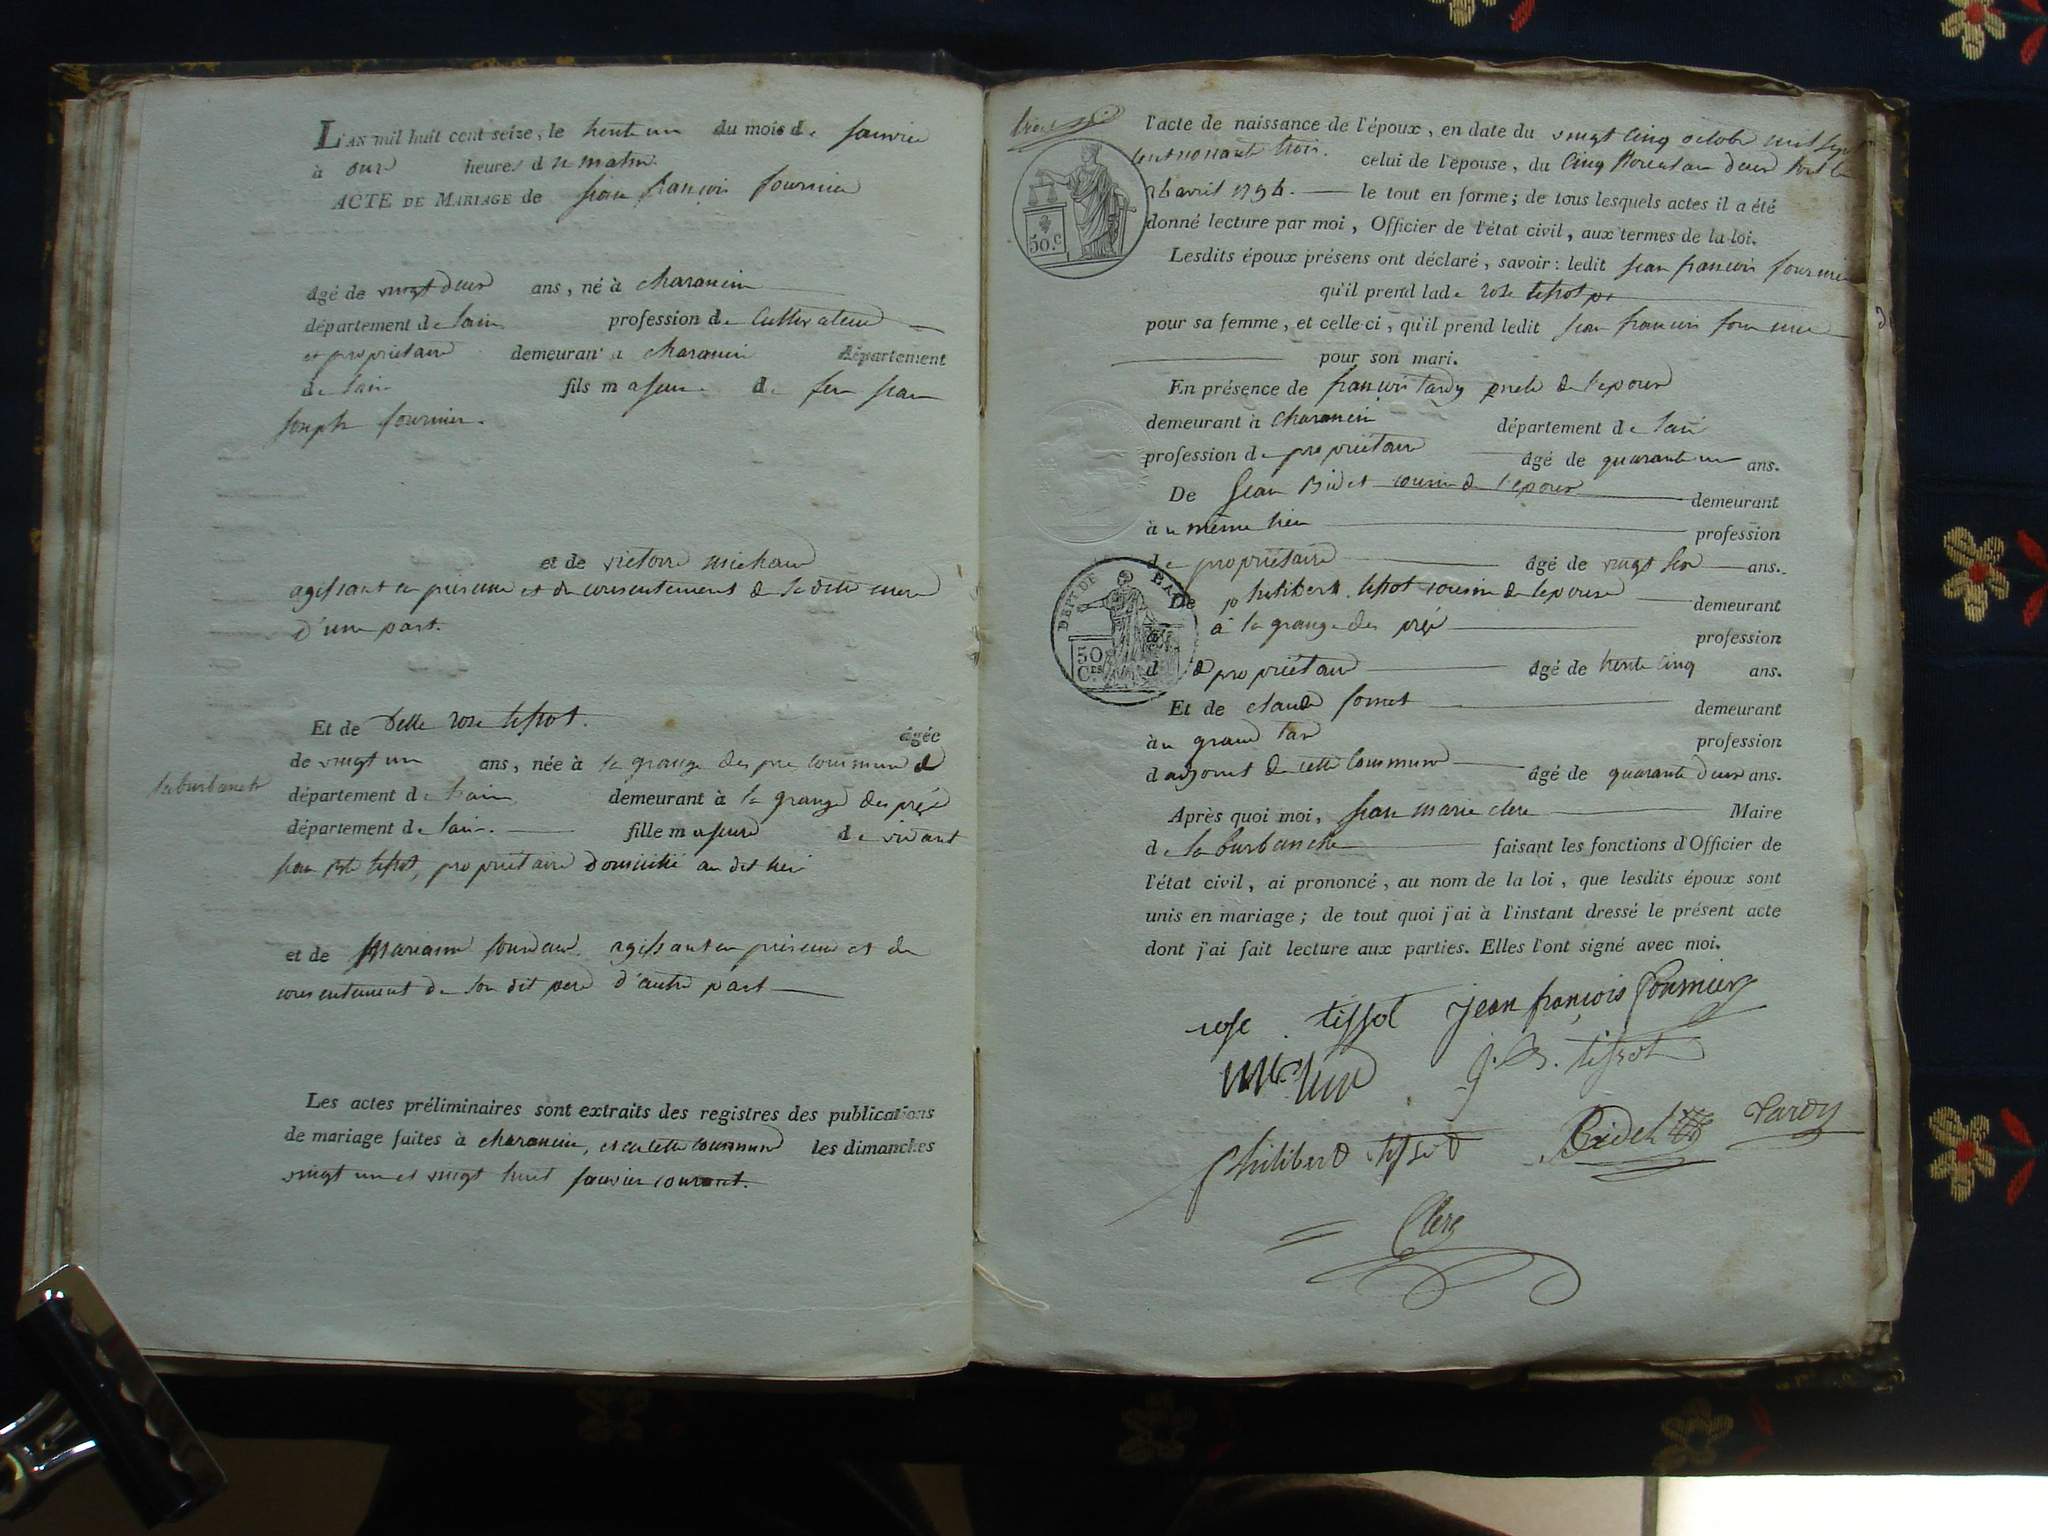 L'AN mil huit cent seize, le trente un du mois de janvier
à onze heures du matin.
ACTE DE MARIAGE de jean françois fournier
âgé de vingt deux ans, né à charancin
département de lain profession de Cultivateur
et propriétaire demeurant à charancin département
de lain fils majeur de feu jean
joseph fournier.
et de victoire michaud
agissant en présence et du consentement de sa dite mere
d'une part.
Et de delle rose tissot. âgée
de vingt un ans, née à la grange des pré commune de
laburbanche
département de lain demeurant à la grange des pré
département de lain. fille majeure de vivant
jean Bte tissot, propriétaire domicilié au dit lieu
et de Marianne agissant en présence et du
consentement de son dit pere d'autre part
Les actes préliminaires sont extraits des registres des publications
de mariage faites à charancin, et en cette commune les dimanches
vingt un et vingt huit janvier courant.
l'acte de naissance de l'époux, en date du vingt cinq octobre mil sept
cent nonante trois. celui de l'épouse, du Cinq floreal an deux
avril 1794. le tout en forme; de tous lesquels actes il a été
donné lecture par moi, Officier de l'état civil, aux termes de la loi.
50.c
Lesdits époux présens ont déclaré, savoir: ledit jean francois fournier
qu'il prend lade rose tissot
pour sa femme, et celle-ci, qu'il prend ledit jean francois fournier
pour son mari.
En présence de françois tardy oncle de l'epoux
demeurant à charancin département de lain
profession de propriétaire âgé de quarante un ans.
De Jean Bidet cousin de l'epoux demeurant
à u même lieu profession
de propriétaire âgé de vingt six ans.
DEPT DE
De philibert tissot cousin de lepouse demeurant
à la grange des pré profession
50 Ces
d propriétaire âgé de trente cinq ans.
Et de claude demeurant
àu grand profession
d adjoint de cette Commune âgé de quarante deux ans.
Après quoi moi, jean marie clerc Maire
de la burbanche faisant les fonctions d'Officier de
l'état civil, ai prononcé, au nom de la loi, que lesdits époux sont
unis en mariage; de tout quoi j'ai à l'instant dressé le présent acte
dont j'ai fait lecture aux parties. Elles l'ont signé avec moi.
rose tissot jean françois fournier
J. B. tissot
Philibert tissot Bidet Tardy
Clerc